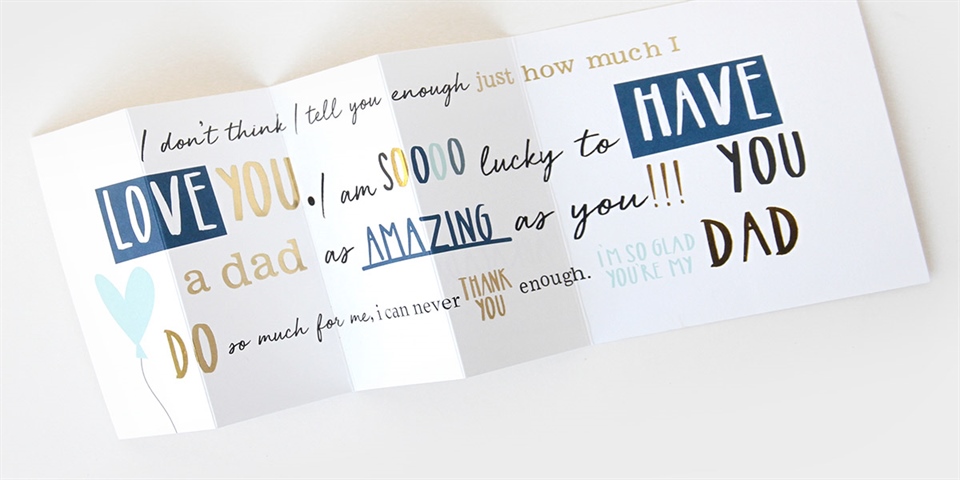 I don't think I tell you enough just how much I
LOVE YOU. I am SOOOO lucky to HAVE
a dad as AMAZING as you!!! YOU
DO so much for me, i can never THANK YOU enough. I'M SO GLAD YOU'RE MY DAD